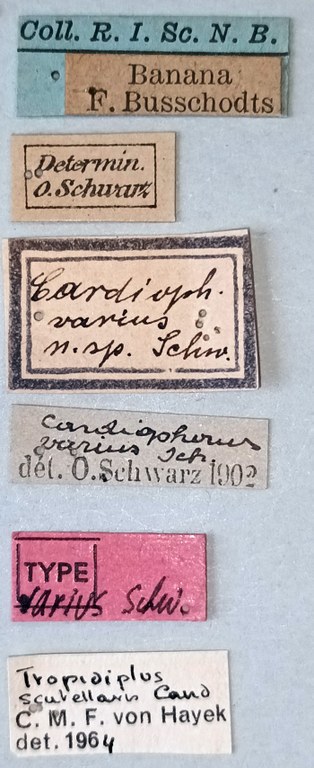 Coll. R. I. Sc. N. B.
Banana
F. Busschodts
Determin.
O. Schwarz
Cardioph.
varius
n. sp. Schw.
Cardiophorus
varius Sch.
dét. O. Schwarz 1902
TYPE
varius Schw.
Tropidiplus
scutellaris Cand
C. M. F. von Hayek
det. 1964